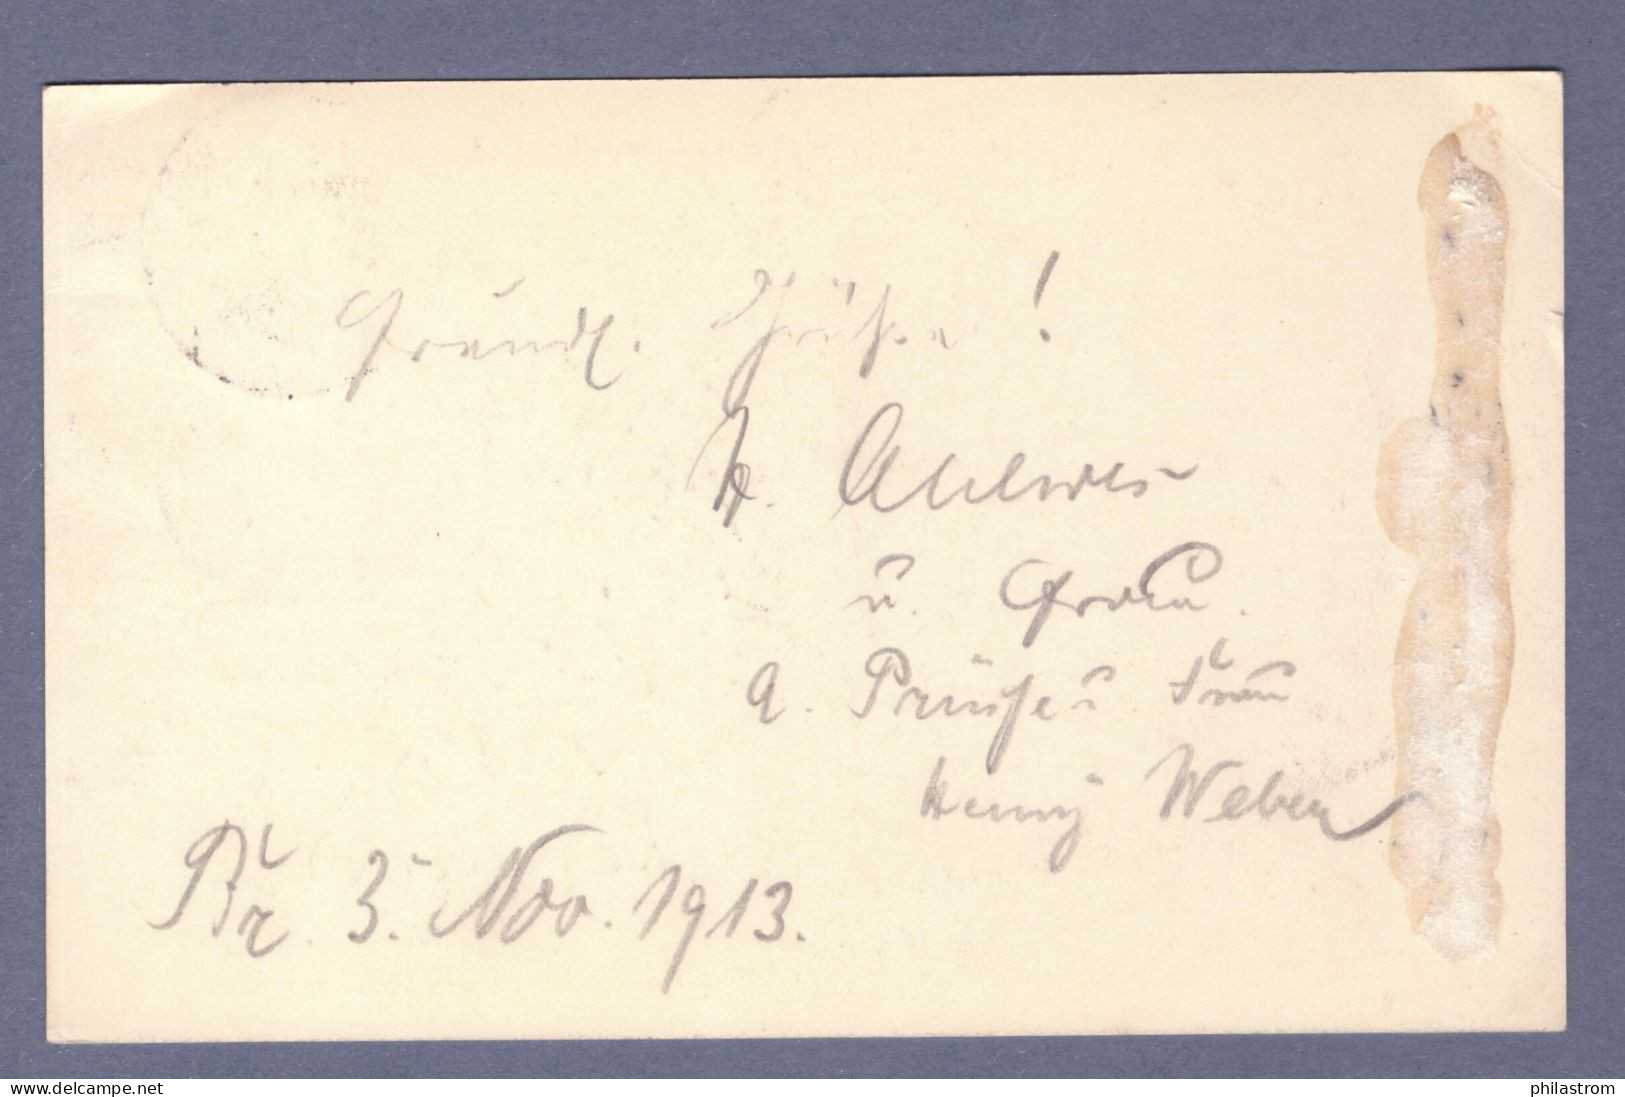 Freundl. Grüße!
H. Ahlwes
u. Frau.
A. Prüße u. Frau
Henny Weber
Br. 3. Nov. 1913.
www.delcampe.net
philastrom